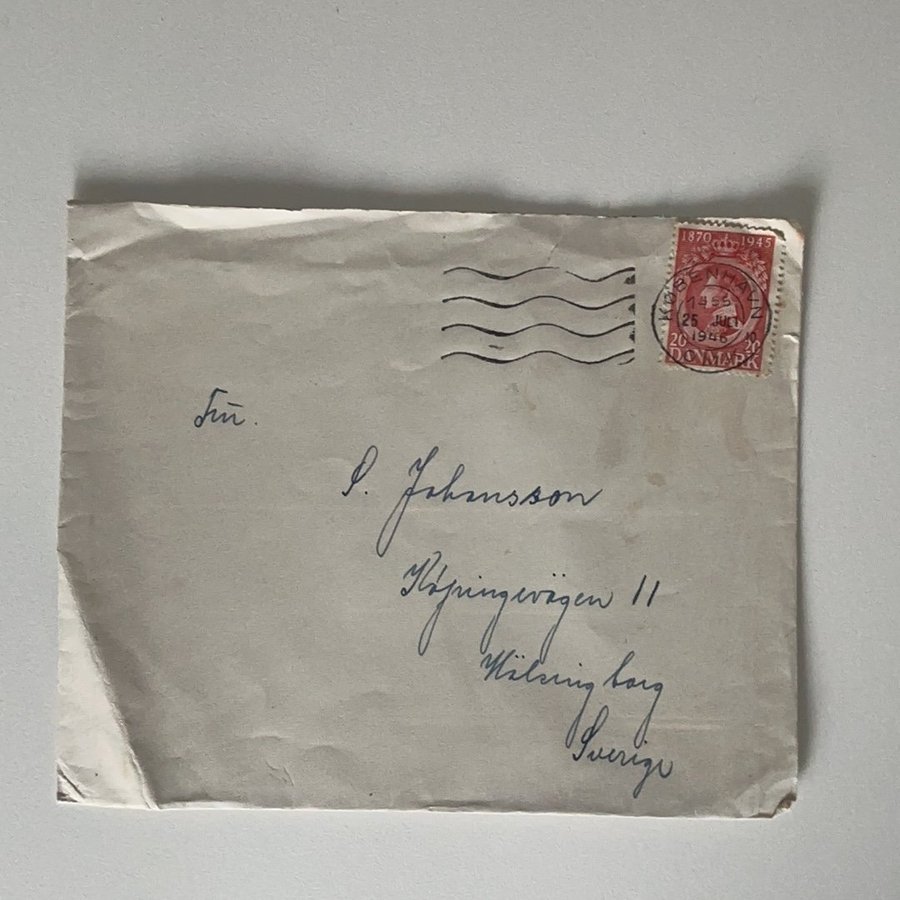 1870 1945
KØBENHAVN
1455
25 JULI
1946
OMK.
20 20
DANMARK
Frú.
S. Johansson
Köpingevägen 11
Hälsingborg
Sverige